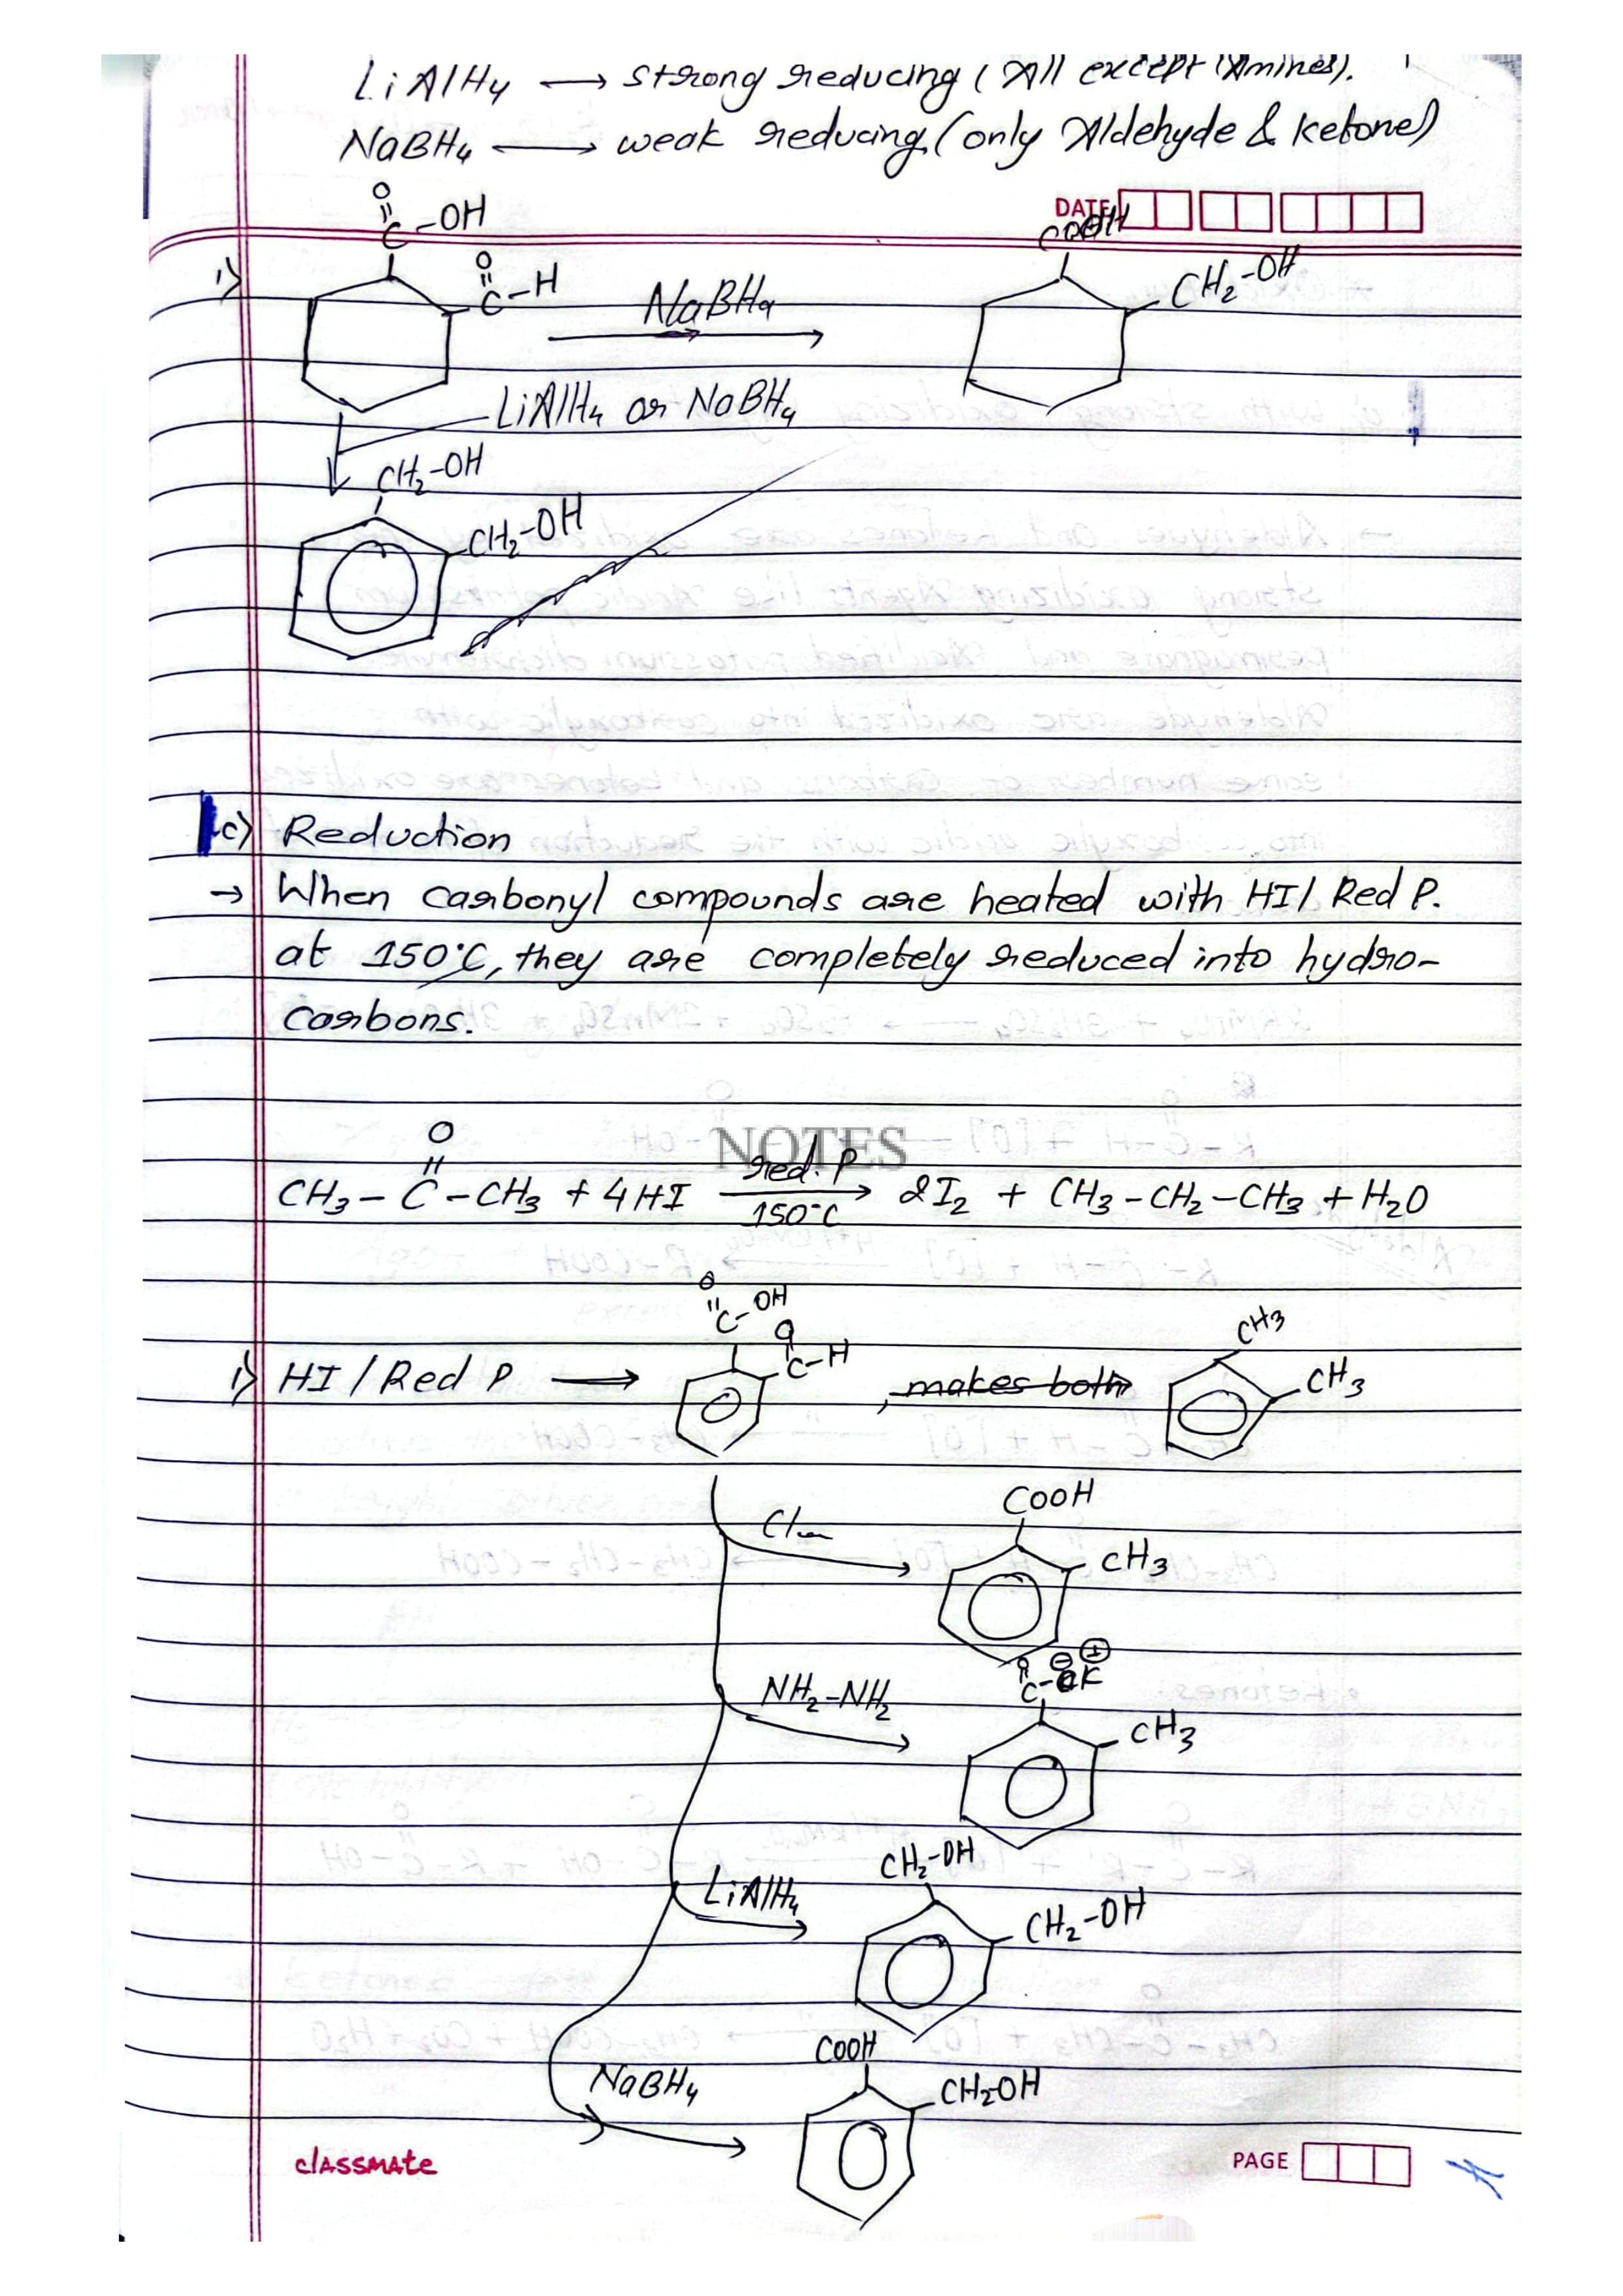 LiAlH4 → strong reducing (All except Amines).
NaBH4 → weak reducing (only Aldehyde & ketone)
DATE
O
C-OH
COOH
1)
O
C-H
NaBH4
CH2-OH
LiAlH4 or NaBH4
CH2-OH
CH2-OH
c) Reduction
→ When carbonyl compounds are heated with HI/ Red P.
at 150°C, they are completely reduced into hydro-
carbons.
NOTES
O
CH3-C-CH3 + 4HI red. P → 2I2 + CH3-CH2-CH3 + H2O
150°C
O
C-OH
O
C-H
CH3
1) HI / Red P → , makes both CH3
COOH
CH3
O ⊖ ⊕
C-OK
NH2-NH2
CH3
CH2-OH
LiAlH4
CH2-OH
COOH
NaBH4
CH2OH
classmate
PAGE